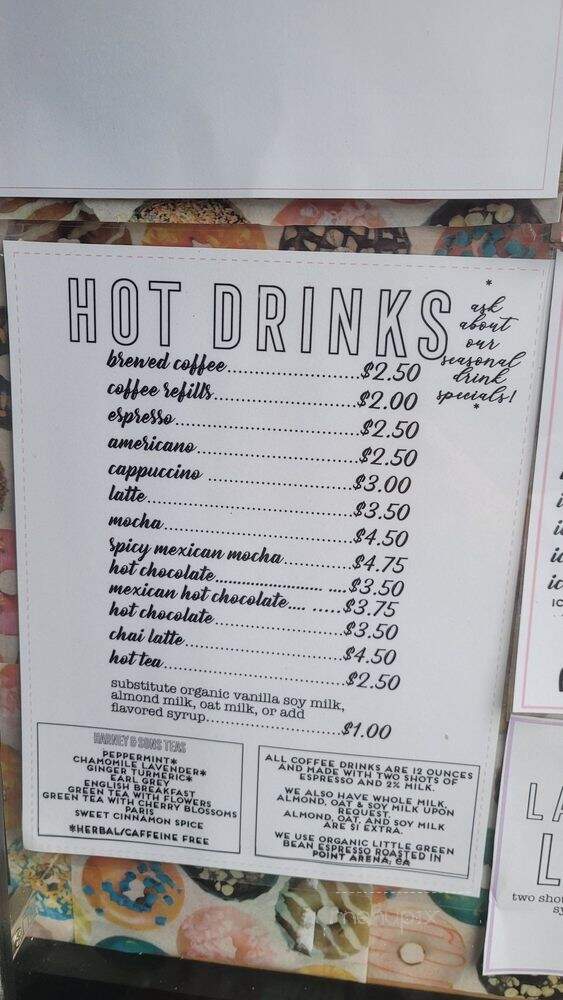 HOT DRINKS
*
ask
about
our
seasonal
drink
specials!
*
brewed coffee..................$2.50
coffee refills....................$2.00
espresso.........................$2.50
americano......................$2.50
cappuccino ....................$3.00
latte..............................$3.50
mocha...........................$4.50
spicy mexican mocha..........$4.75
hot chocolate........................ ....$3.50
mexican hot chocolate.... .....$3.75
hot chocolate...................$3.50
chai latte........................$4.50
hot tea...........................$2.50
substitute organic vanilla soy milk,
almond milk, oat milk, or add
flavored syrup....................$1.00
HARNEY & SONS TEAS
PEPPERMINT*
CHAMOMILE LAVENDER*
GINGER TURMERIC*
EARL GREY
ENGLISH BREAKFAST
GREEN TEA WITH FLOWERS
GREEN TEA WITH CHERRY BLOSSOMS
PARIS
SWEET CINNAMON SPICE
*HERBAL/CAFFEINE FREE
ALL COFFEE DRINKS ARE 12 OUNCES
AND MADE WITH TWO SHOTS OF
ESPRESSO AND 2% MILK.
WE ALSO HAVE WHOLE MILK,
ALMOND, OAT & SOY MILK UPON
REQUEST.
ALMOND, OAT, AND SOY MILK
ARE $1 EXTRA.
WE USE ORGANIC LITTLE GREEN
BEAN ESPRESSO ROASTED IN
POINT ARENA, CA
two sho
sy
menupix